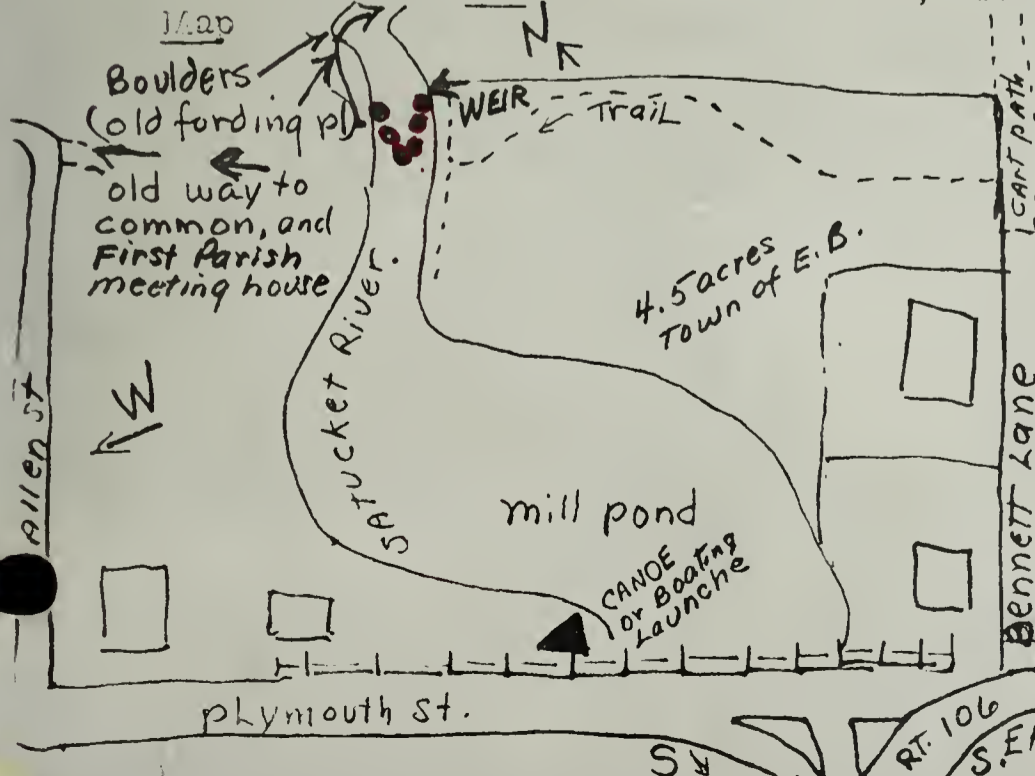 Map
N
Boulders
(old fording pl.
WEIR
Trail
CART PATH
old way to
common, and
First Parish
meeting house
4.5 acres
Town of E.B.
SATUCKET RIVER.
W
Allen St
mill pond
CANOE
or Boating
Launche
Bennett Lane
plymouth St.
RT. 106
S